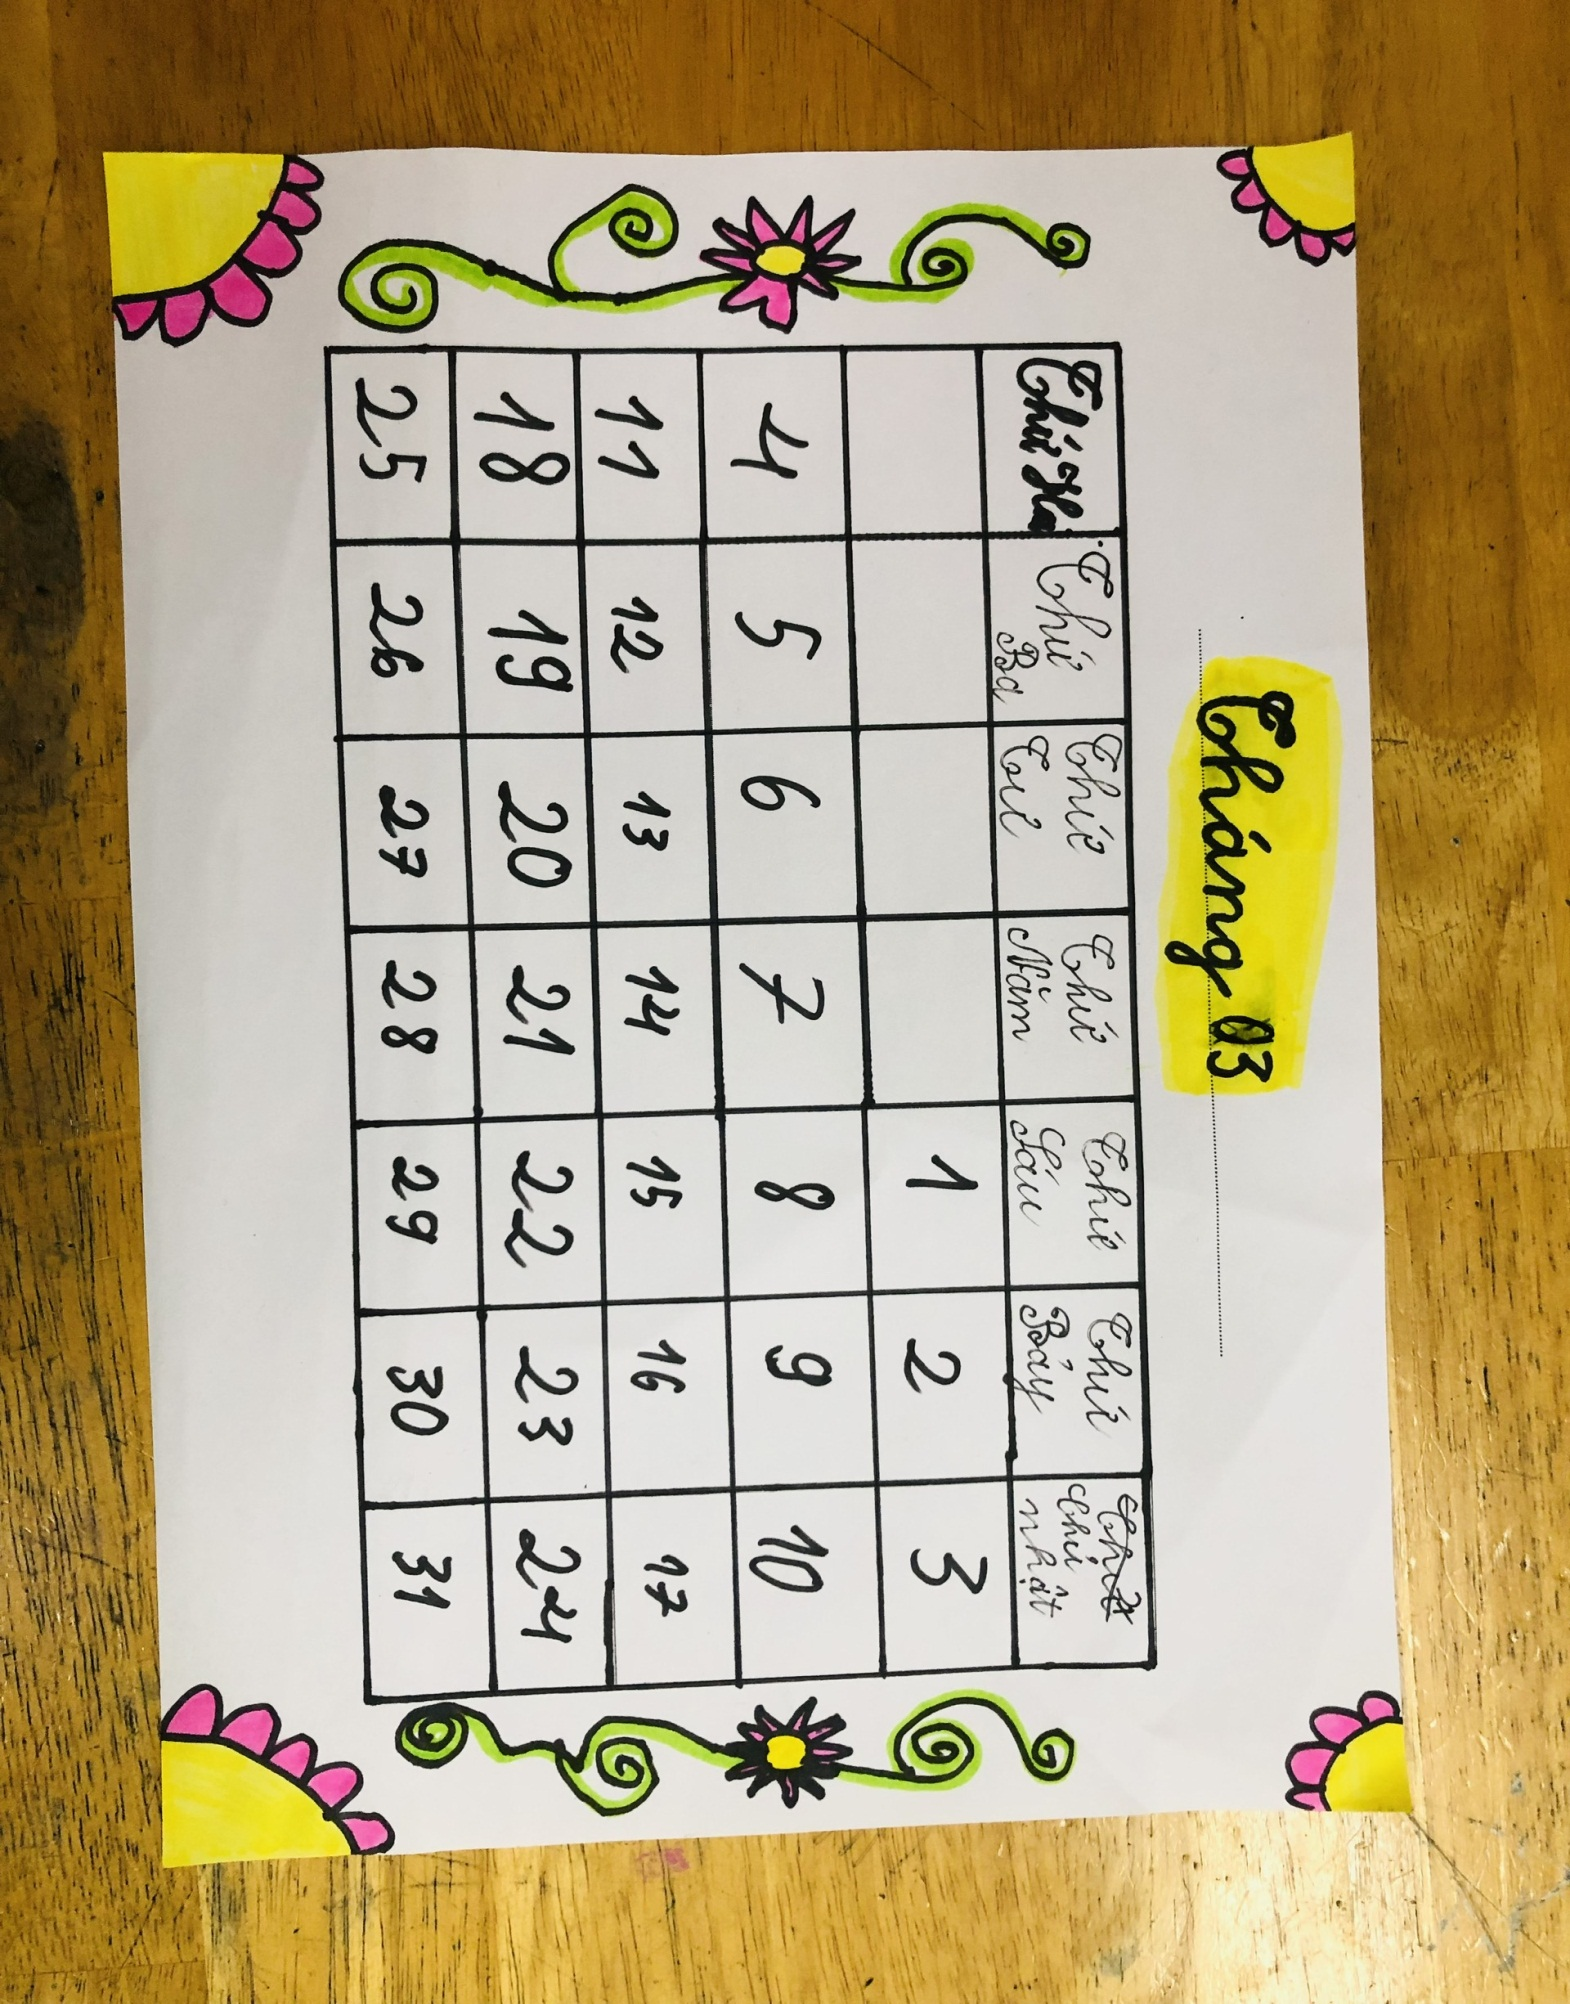 Tháng 03
Thứ Hai Thứ Ba Thứ Tư Thứ Năm Thứ Sáu Thứ Bảy Chủ nhật
1 2 3
4 5 6 7 8 9 10
11 12 13 14 15 16 17
18 19 20 21 22 23 24
25 26 27 28 29 30 31